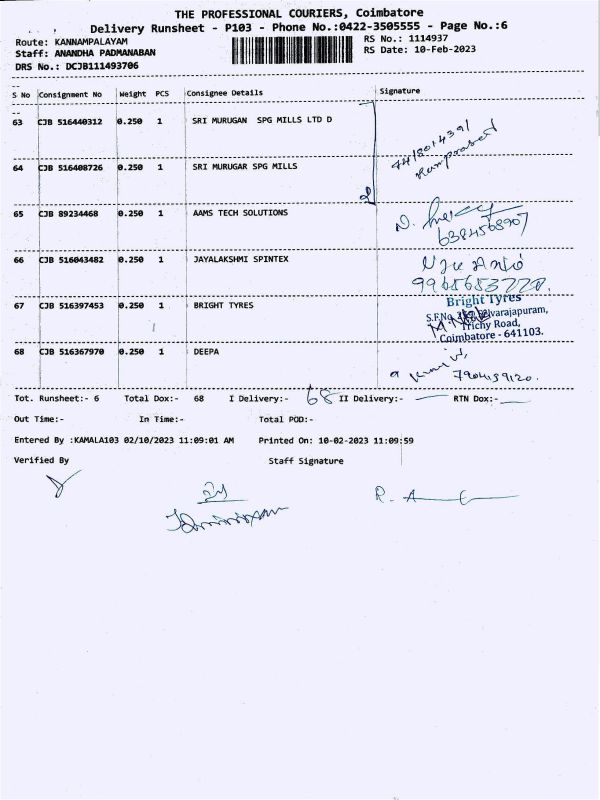 THE PROFESSIONAL COURIERS, Coimbatore
Delivery Runsheet - P103 - Phone No.:0422-3505555 - Page No.:6
Route: KANNAMPALAYAM
Staff: ANANDHA PADMANABAN
DRS No.: DCJB111493706
RS No.: 1114937
RS Date: 10-Feb-2023
S No Consignment No Weight PCS Consignee Details Signature
63 CJB 516440312 0.250 1 SRI MURUGAN SPG MILLS LTD D
64 CJB 516408726 0.250 1 SRI MURUGAR SPG MILLS
65 CJB 89234468 0.250 1 AAMS TECH SOLUTIONS
6384568907
66 CJB 516043482 0.250 1 JAYALAKSHMI SPINTEX
67 CJB 516397453 0.250 1 BRIGHT TYRES
Bright Tyres
Trichy Road,
Coimbatore - 641103.
68 CJB 516367970 0.250 1 DEEPA
7904159120.
Tot. Runsheet:- 6 Total Dox:- 68 I Delivery:- 68 II Delivery:- RTN Dox:-
Out Time:- In Time:- Total POD:-
Entered By :KAMALA103 02/10/2023 11:09:01 AM Printed On: 10-02-2023 11:09:59
Verified By Staff Signature